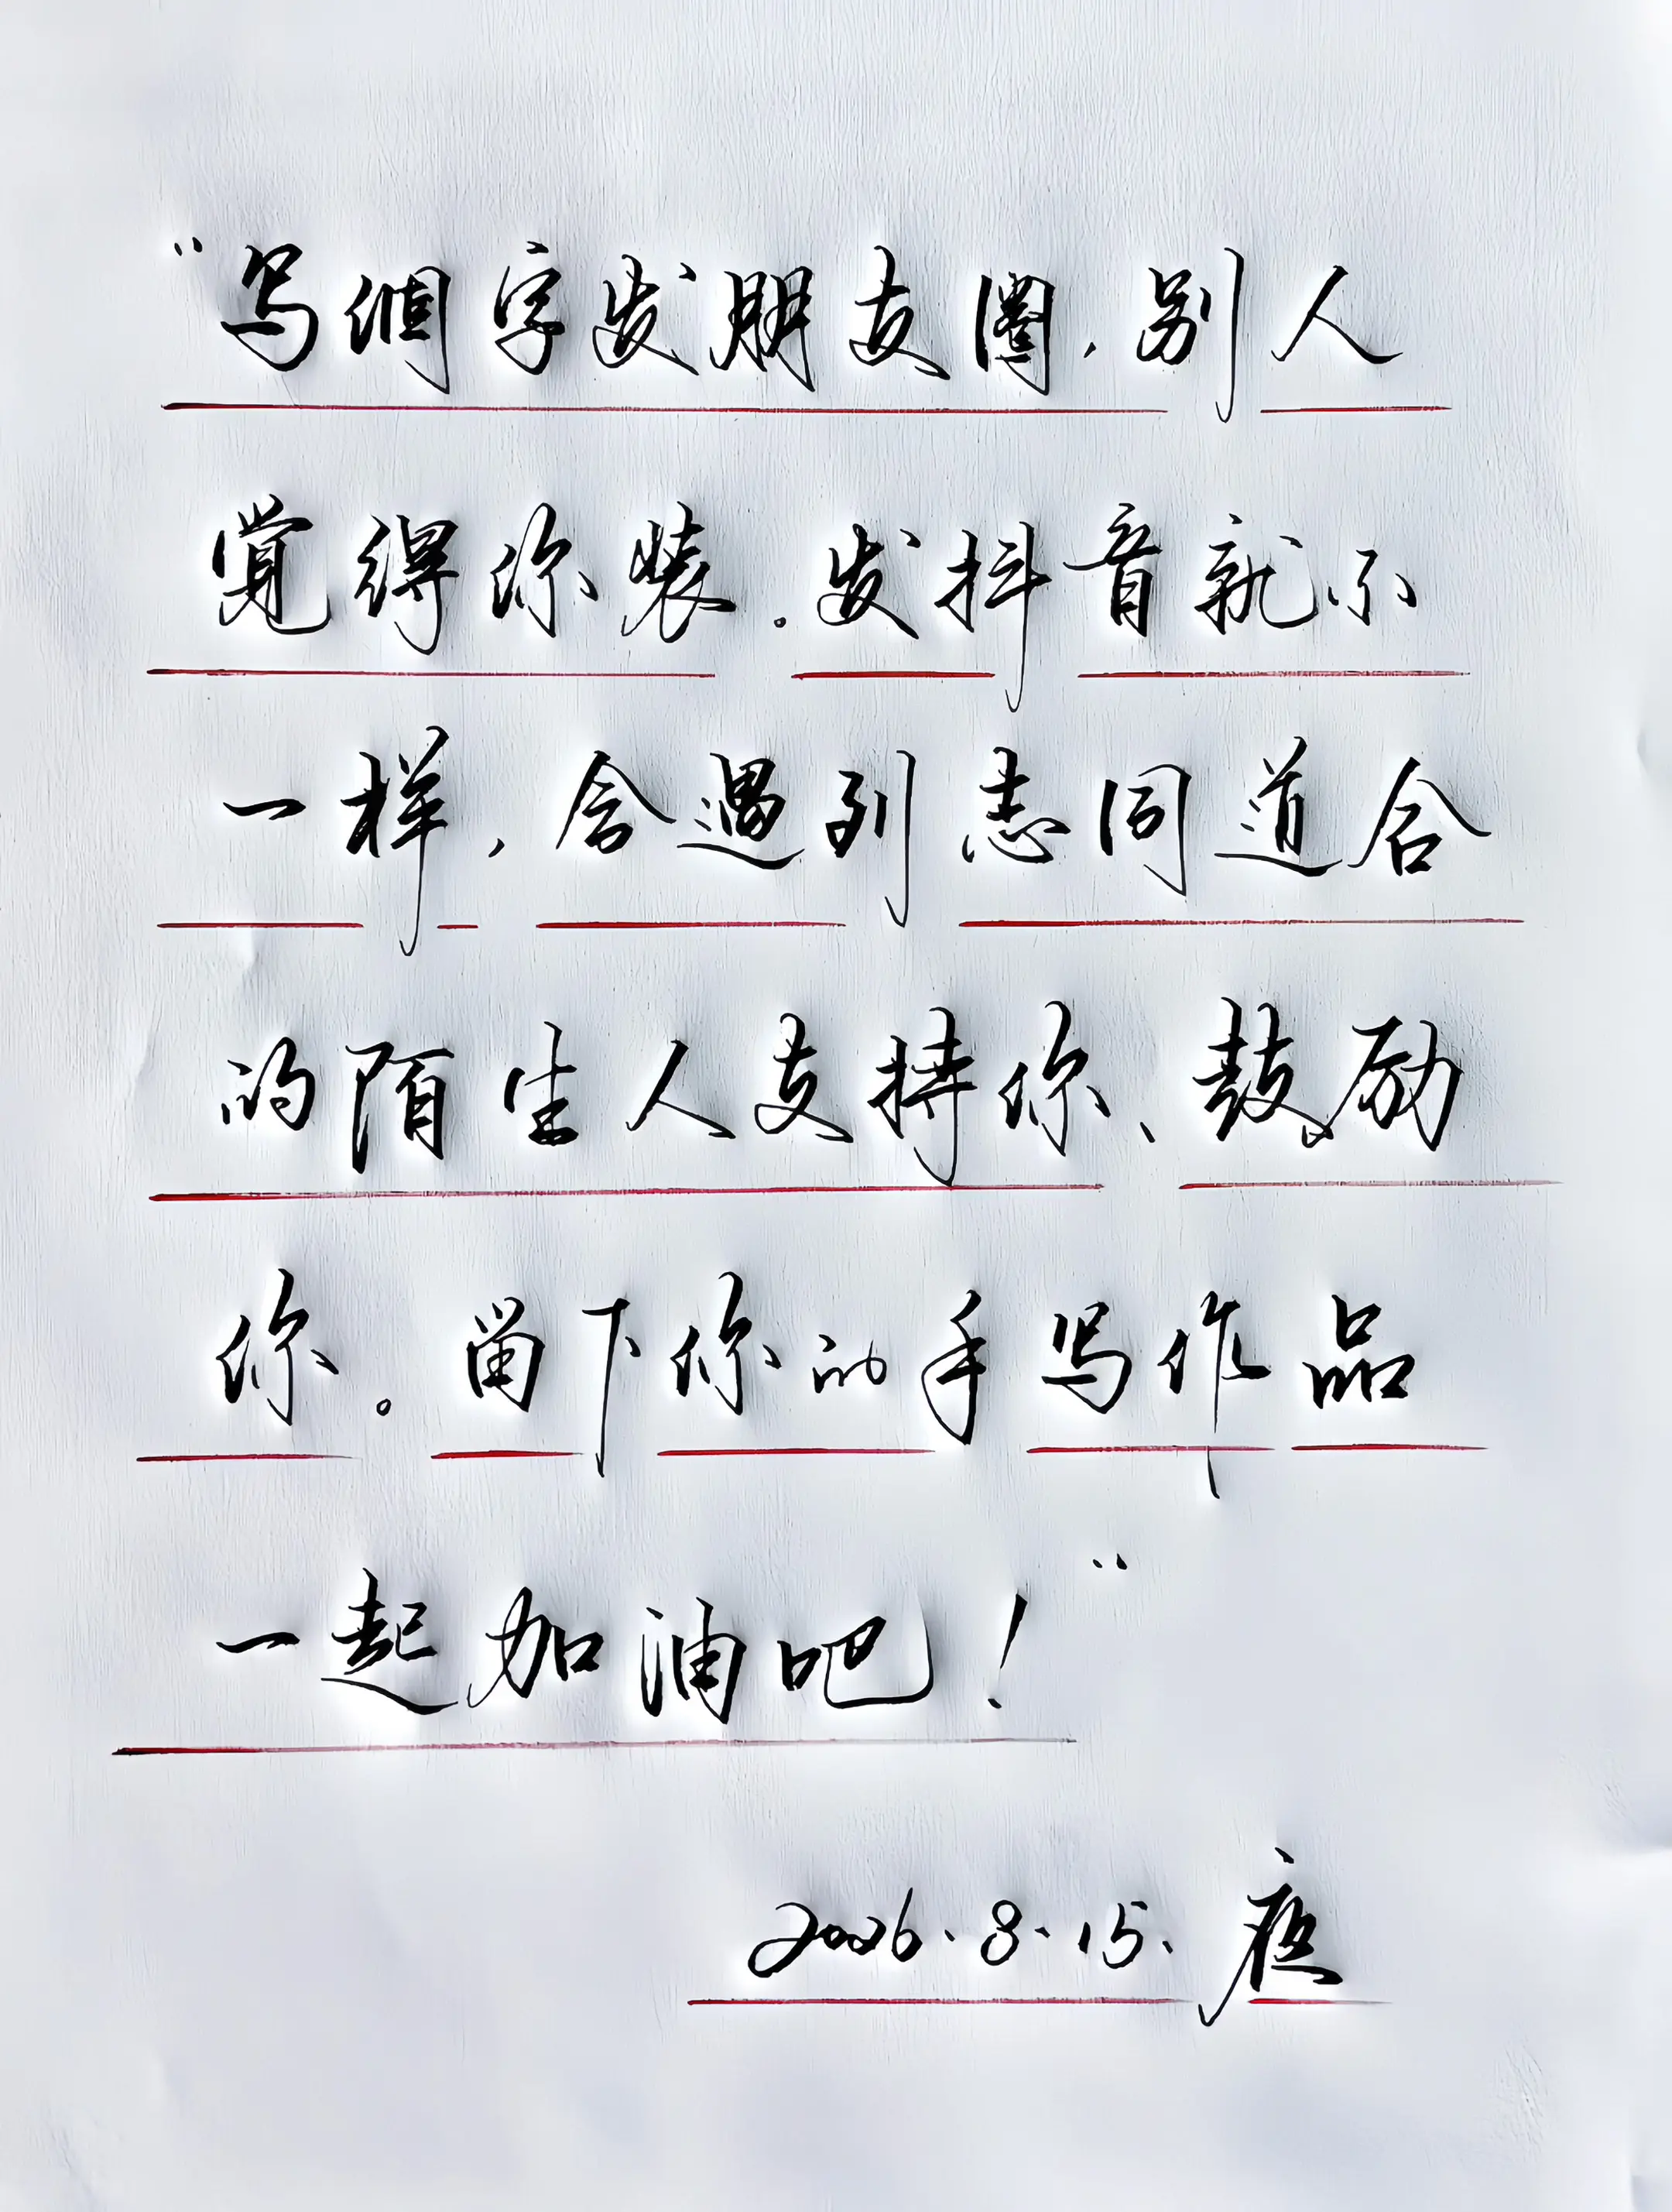 “写個字发朋友圈，别人
觉得你装。发抖音就不
一样，会遇到志同道合
的陌生人支持你、鼓励
你。留下你的手写作品
一起加油吧！”
2026.8.15.